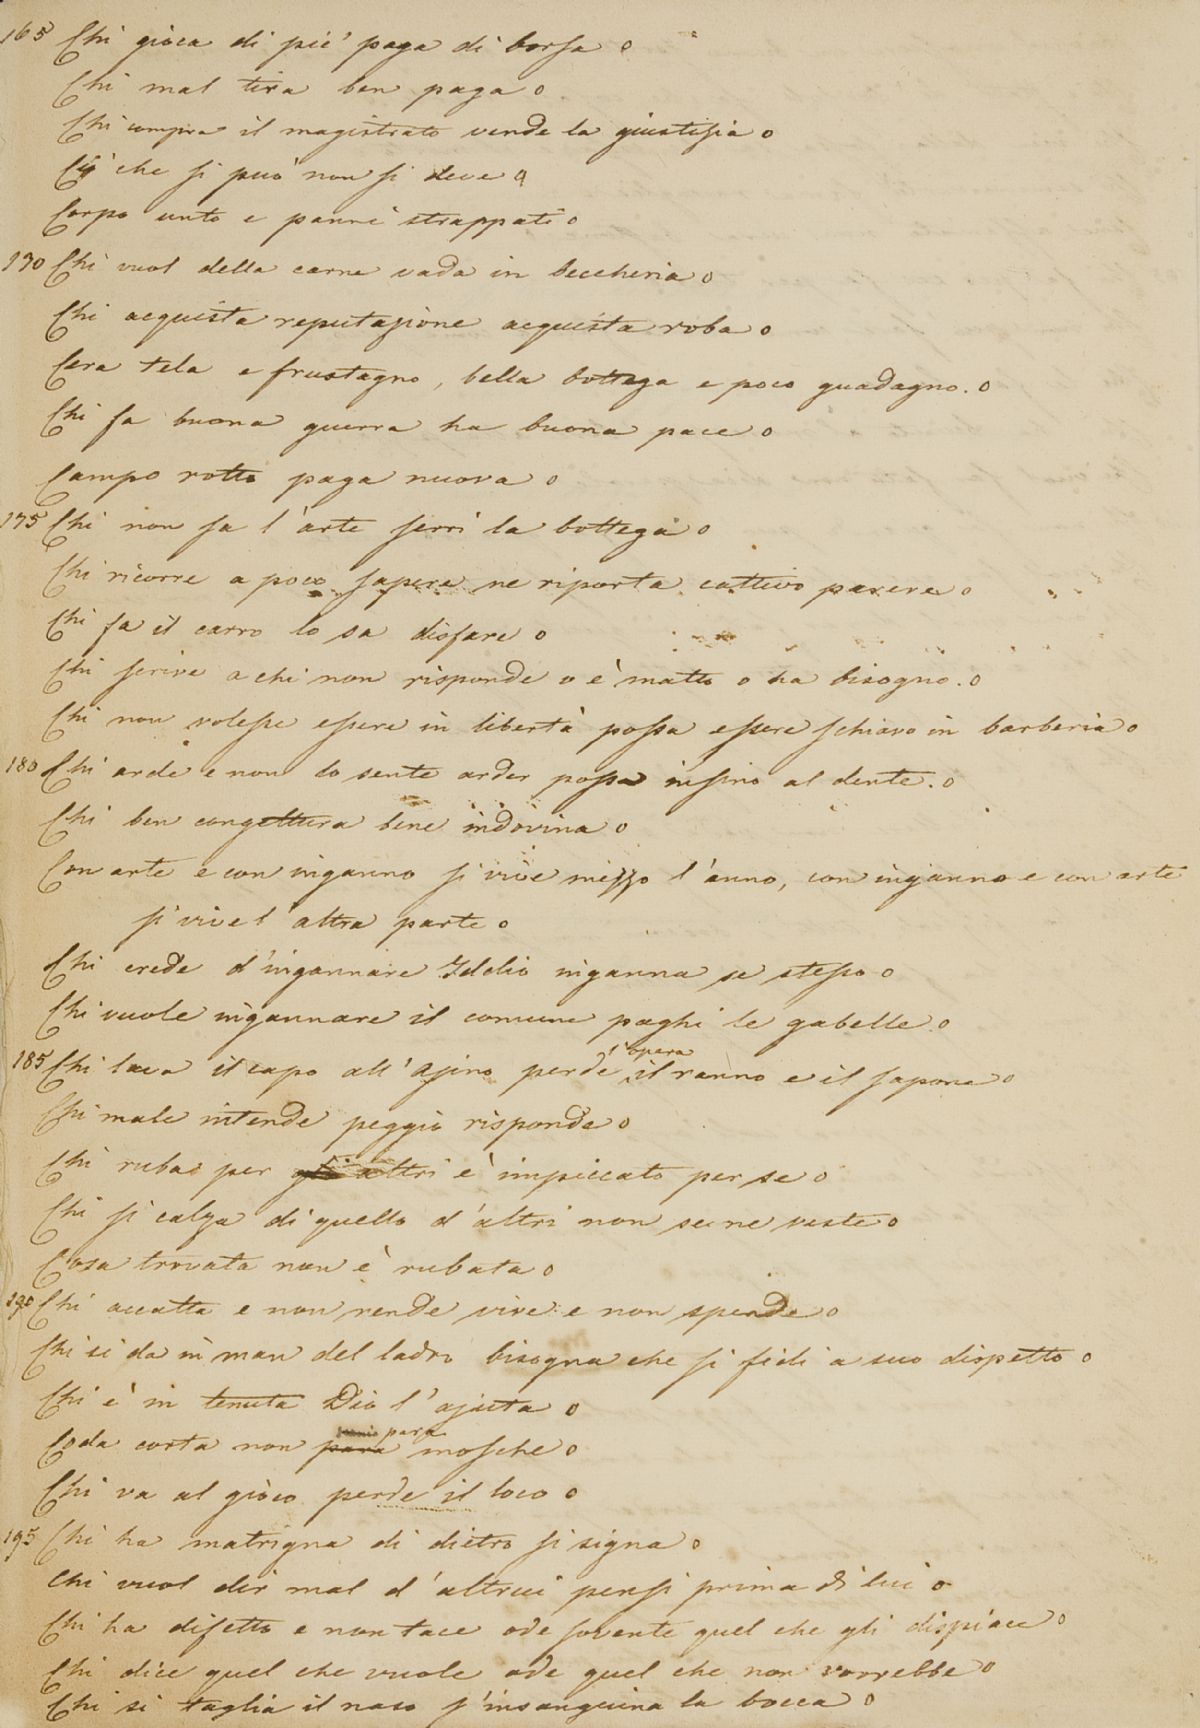 165 Chi gioca di piè paga di borsa o
Chi mal tira ben paga o
Chi compra il magistrato vende la giustizia o
Ciò che si può non si deve o
Corpo unto e panni strappati o
170 Chi vuol della carne vada in beccheria o
Chi acquista reputazione acquista roba o
Cera tela e frustagno, bella bottega e poco guadagno. o
Chi fa buona guerra ha buona pace o
Campo rotto paga nuova o
175 Chi non sa l'arte serri la bottega o
Chi ricorre a poco sapere ne riporta cattivo parere o
Chi fa il carro lo sa disfare o
Chi scrive a chi non risponde o è matto o ha bisogno. o
Chi non volesse essere in libertà possa essere schiavo in barberia o
180 Chi arde e non lo sente arder possa insino al dente. o
Chi ben congettura bene indovina o
Con arte e con inganno si vive mezzo l'anno, con inganno e con arte
si vive l'altra parte o
Chi crede d'ingannare Iddio inganna se stesso o
Chi vuole ingannare il comune paghi le gabelle o
l'opera
185 Chi lava il capo all'asino perde il ranno e il sapone o
Chi male intende peggio risponde o
Chi ruba per gli altri è impiccato per se o
Chi si calza di quello d'altri non se ne veste o
Cosa trovata non è rubata o
190 Chi accatta e non rende vive e non spende o
Chi si da in man del ladro bisogna che si fidi a suo dispetto o
Chi è in tenuta Dio l'ajuta o
para
Coda corta non para mosche o
Chi va al gioco perde il loco o
195 Chi ha matrigna di dietro si signa o
Chi vuol dir mal d'altrui pensi prima di lui o
Chi ha difetto e non tace ode sovente quel che gli dispiace o
Chi dice quel che vuole ode quel che non vorrebbe o
Chi si taglia il naso s'insanguina la bocca o